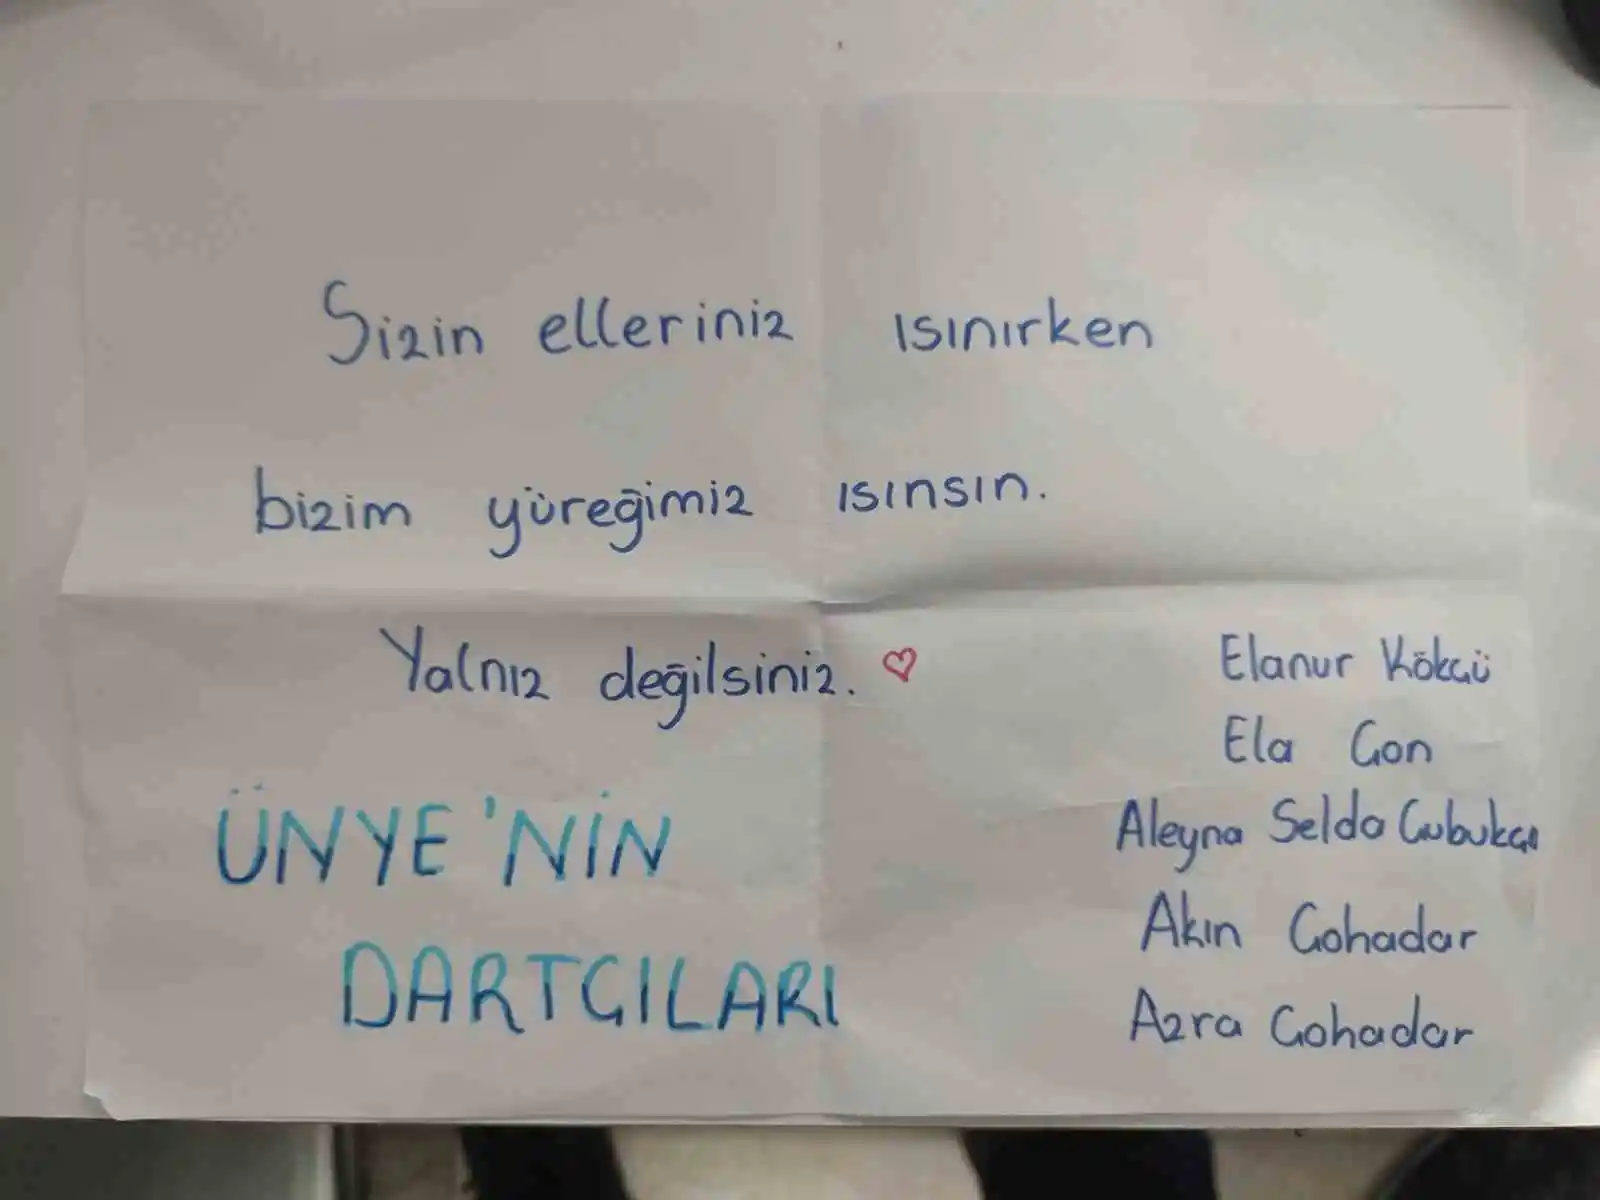 Sizin elleriniz ısınırken
bizim yüreğimiz ısınsın.
Yalnız değilsiniz. ♡
ÜNYE'NİN
DARTCILARI
Elanur Kökcü
Ela Can
Aleyna Selda Cubukcu
Akın Cohadar
Azra Cohadar